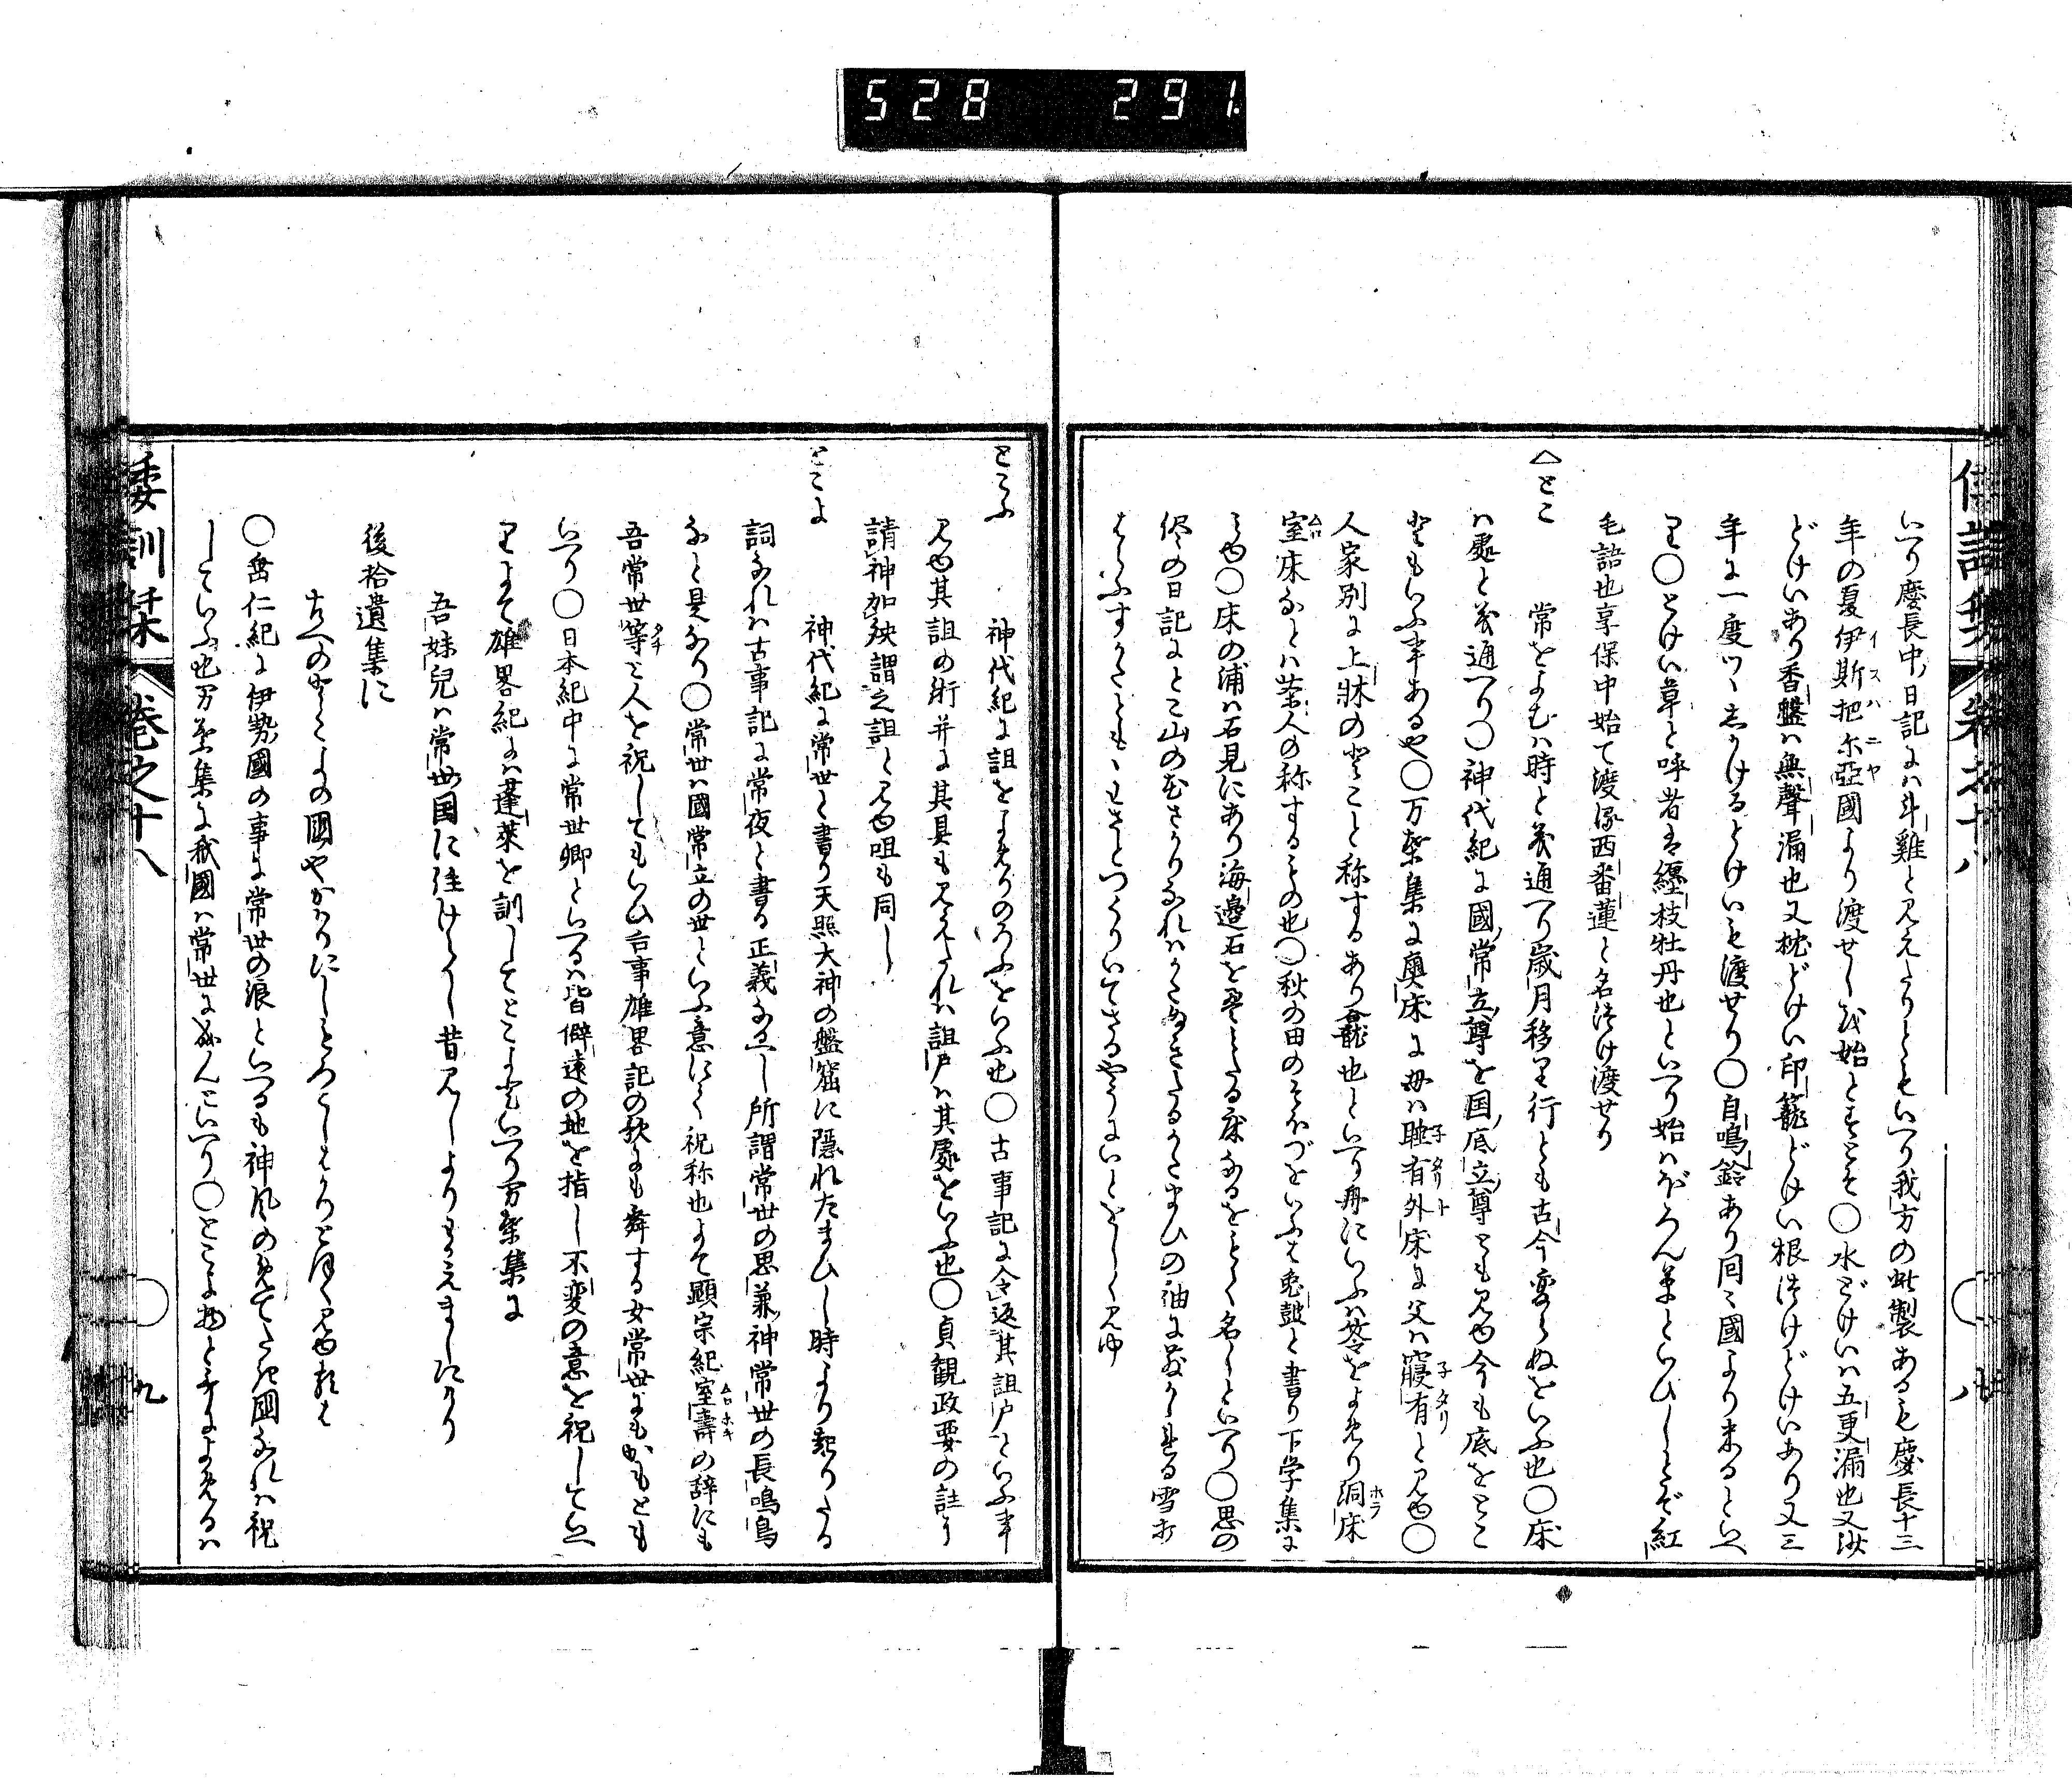 528 291
倭訓栞 巻之十八 八
いへり慶長中日記にハ斗雞と見えたりともいへり我方の此製あるも慶長十三
年の夏伊斯把尓亞國より渡せしを始とすとそ〇水どけいハ五更漏也又
どけいあり香盤ハ無聲漏也又枕どけい印籠どけい根つけどけいあり又三
年に一度ツヽかけるとけいも渡せり〇自鳴鈴あり同國より来るといへ
り〇とけい草と呼者は纒枝牡丹也といへり始ハぼろん草といひしとぞ紅
毛語也享保中始て渡る西番蓮と名つけ渡せり
△とこ 常をよむハ時と義通へり歳月移り行とも古今変らぬをいふ也〇床
ハ處と義通へり〇神代紀に國常立尊を国底立尊とも見ゆ今も底をとこ
ともいふ事あるや〇万葉集に奥床に母ハ睡有外床に父ハ寢有と見ゆ〇
人家別に上牀のとこと称するあり龕也といへり舟にいふハ苓をよめり洞床
室床なとハ茶人の称するもの也〇秋の田のそほづをいふは兎皷と書り下学集に
見ゆ〇床の浦ハ石見にあり海邉石を畳みたる床なるをとく名くといへり〇思の
侭の日記にとこ山のむさかりなれハかたぬきたるかたまひの袖に散かゝる雪打
はらふすかたともゝとさとつくりいてさるやうにいとをかしく見ゆ
とこふ 神代紀に詛をよめりのろふをいふ也〇古事記に令返其詛戸といふ事
見ゆ其詛の術并に其具も見えたれハ詛戸ハ其處をいふ也〇貞観政要の註に
請神加殃謂之詛と見ゆ咀も同し
とこよ 神代紀に常世と書り天照大神の盤窟に隠れたまひし時より起りたる
詞なれハ古事記に常夜と書る正義なるへし所謂常世の思兼神常世の長鳴鳥
なと見えたり〇常世ハ國常立の世といふ意にて祝称也よて顕宗紀室壽の辞にも
吾常世等と人を祝してもいひ古事雄畧記の歌にも舞する女常世にもかもとも
いへり〇日本紀中に常世郷といへるハ皆僻遠の地を指し不変の意を祝していへ
りよて雄畧紀にハ蓬莱を訓してとこよといへり万葉集に
吾妹兒ハ常世国に住けらし昔見しよりもわかえましにけり
後拾遺集に
古へのとこよの國やかハりにしもろこしはかりと浮く見ゆれは
〇垂仁紀に伊勢國の事に常世の浪といへるも神風のめてたき國なれハ祝
していふ也万葉集に我國ハ常世にならんといへり〇とこよ物と歌によめるハ
倭訓栞 巻之十八 九